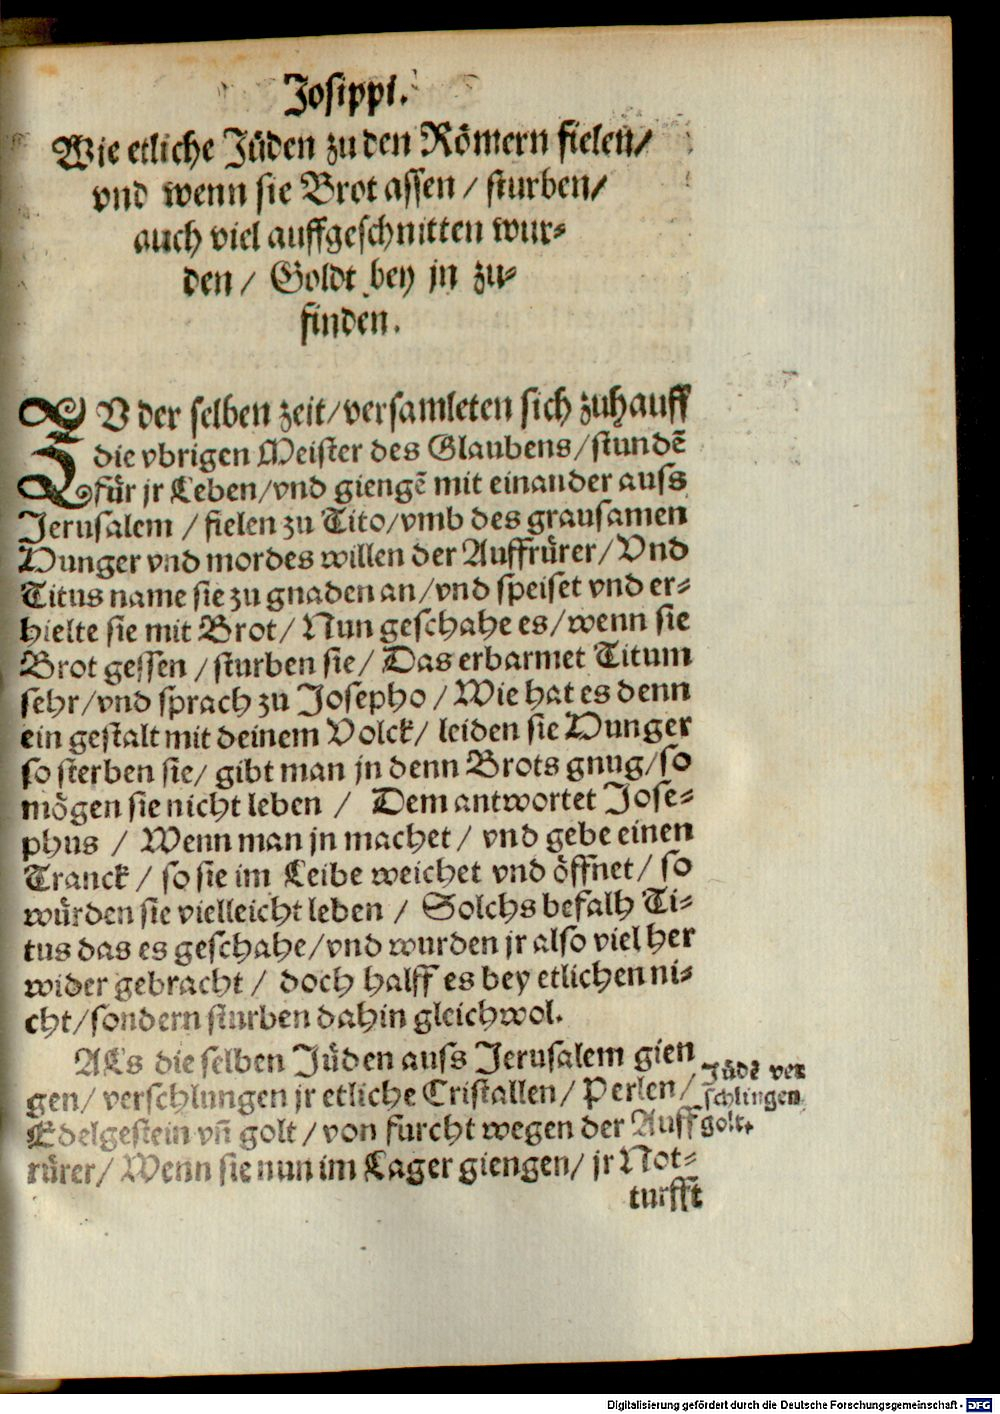 Josippi.
Wie etliche Jüden zu den Römern fielen/
vnd wenn sie Brot assen / sturben/
auch viel auffgeschnitten wur⸗
den / Goldt bey jn zu⸗
finden.
ZV der selben zeit/versamleten sich zuhauff
die vbrigen Meister des Glaubens/stundē
für jr Leben/vnd giengē mit einander auss
Jerusalem / fielen zu Tito/vmb des grausamen
Hunger vnd mordes willen der Auffrürer/Vnd
Titus name sie zu gnaden an/vnd speiset vnd er⸗
hielte sie mit Brot/ Nun geschahe es/wenn sie
Brot gessen /sturben sie/ Das erbarmet Titum
sehr/vnd sprach zu Josepho / Wie hat es denn
ein gestalt mit deinem Volck/ leiden sie Hunger
so sterben sie/ gibt man jn denn Brots gnug/so
mögen sie nicht leben / Dem antwortet Jose⸗
phus / Wenn man jn machet / vnd gebe einen
Tranck / so sie im Leibe weichet vnd öffnet/ so
würden sie vielleicht leben / Solchs befalh Ti⸗
tus das es geschahe/vnd wurden jr also viel her
wider gebracht / doch halff es bey etlichen ni⸗
cht/sondern sturben dahin gleichwol.
ALs die selben Jüden auss Jerusalem gien
gen/ verschlungen jr etliche Cristallen/ Perlen/
Edelgestein vñ golt / von furcht wegen der Auff
rürer/ Wenn sie nun im Lager giengen/ jr Not⸗
turfft
Jüdē ver
schlingen
golt.
Digitalisierung gefördert durch die Deutsche Forschungsgemeinschaft - DFG